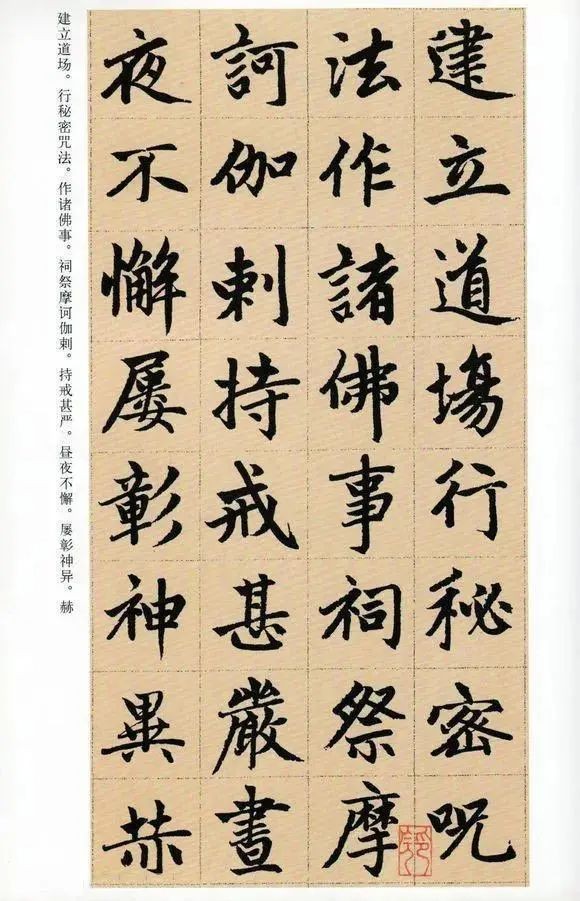 建立道場行秘密呪
法作諸佛事祠祭摩
訶伽剌持戒甚嚴晝
夜不懈屢彰神異赫
建立道场。行秘密咒法。作诸佛事。祠祭摩诃伽剌。持戒甚严。昼夜不懈。屡彰神异。赫